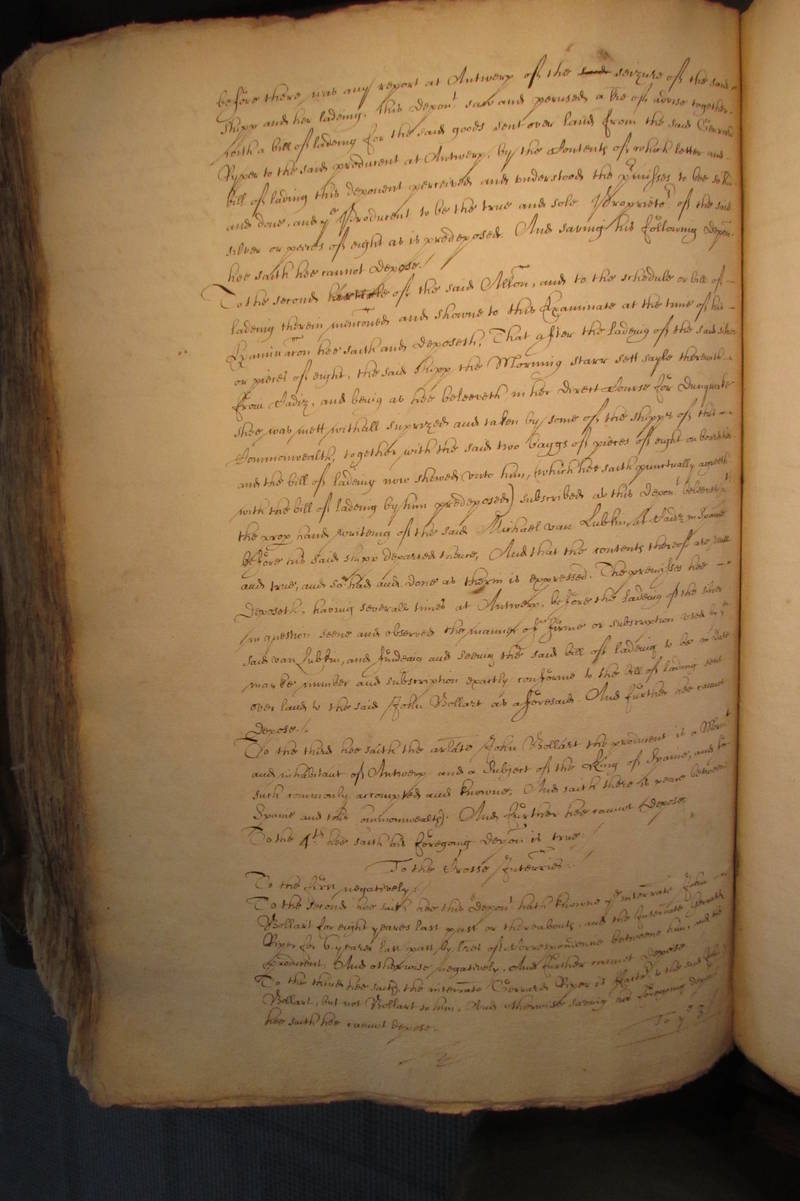 before there was any report at Antwerp of the seizure of the said
shipp and her ladeing. this depont saw and perused a tre of advise together
with a bill of ladeing for the said goods sent over land from the said Gerrard
Ryper to the said producent at Antwerp, by the Contents of which letter and
bill of lading this deponent perceived and understood the prmisses to be so
and done, and ye Producent to be the true and sole Proprietor of the said
silver or peeces of eight as is predeposed. And saving his following depon
hee saith hee cannot depose./
To the second of the said Allon, and to the schedule or bill of
ladeing therein mentioned and showne to this Examinate at the time of his
Examinacon hee saith and deposeth, That after the ladeing of the said silver
or pieces of eight, the said shipp the Morning starr sett sayle therewith
from Cadiz, and being as hee beleeveth in her direct Course for Dunquerke
shee was mett withall surprized and taken by some of the shipps of this
Commonwealth, together with the said two baggs of pieces of eight on board her
and the bill of ladeing now shewed unto him, (which hee saith punctually agreeth
with the bill of ladeing by him predeposed) subscribed as this depont beleeveth
the prop hand writeing of the said Michael van Lubkin, at Cadiz in Spaine
before his said shipp departed thence, And that the contents thereof are reall
and true, and soe had and done as therein is expressed. The premisses hee
deposeth, having severall times at Antwerp, before the ladeing of the silver
in question seene and observed the manner of firme or subscription used by ye
said van Lubkin, and findeing and seeing the said bill of ladeing to be in date
marke number and subscription exactly conforme to the bill of lading sent
over land to the said John Bollart as aforesaid. And further hee cannot
depose./
To the third hee saith the arlate John Bollart the producent is a Mercht
and inhabitant of Antwerp and a Subject of the King of Spaine, and for
such commonly accompted and knowne, And saith there is warr betweene
Spaine and this Commonwealth. And further hee cannot depose.
To the 4th hee saith his foregoing depon is true./
To the Crosse Interries./
To the first negatively./
To the second hee saith hee this depont hath knowne ye interrate John
Bollart for eight yeares last past or thereabouts, and the Interrate Gerrard
Riper for 6 yeares last past by lres of Correspondence betweene him, and the
Producent, And otherwise negatively, And further cannot depose
To the third hee saith the interrate Gerrard Riper is Factor to the said John
Bollart, but not Bollart to him, And otherwise saving his foregoing depon
hee saith hee cannot depose.
To ye 3